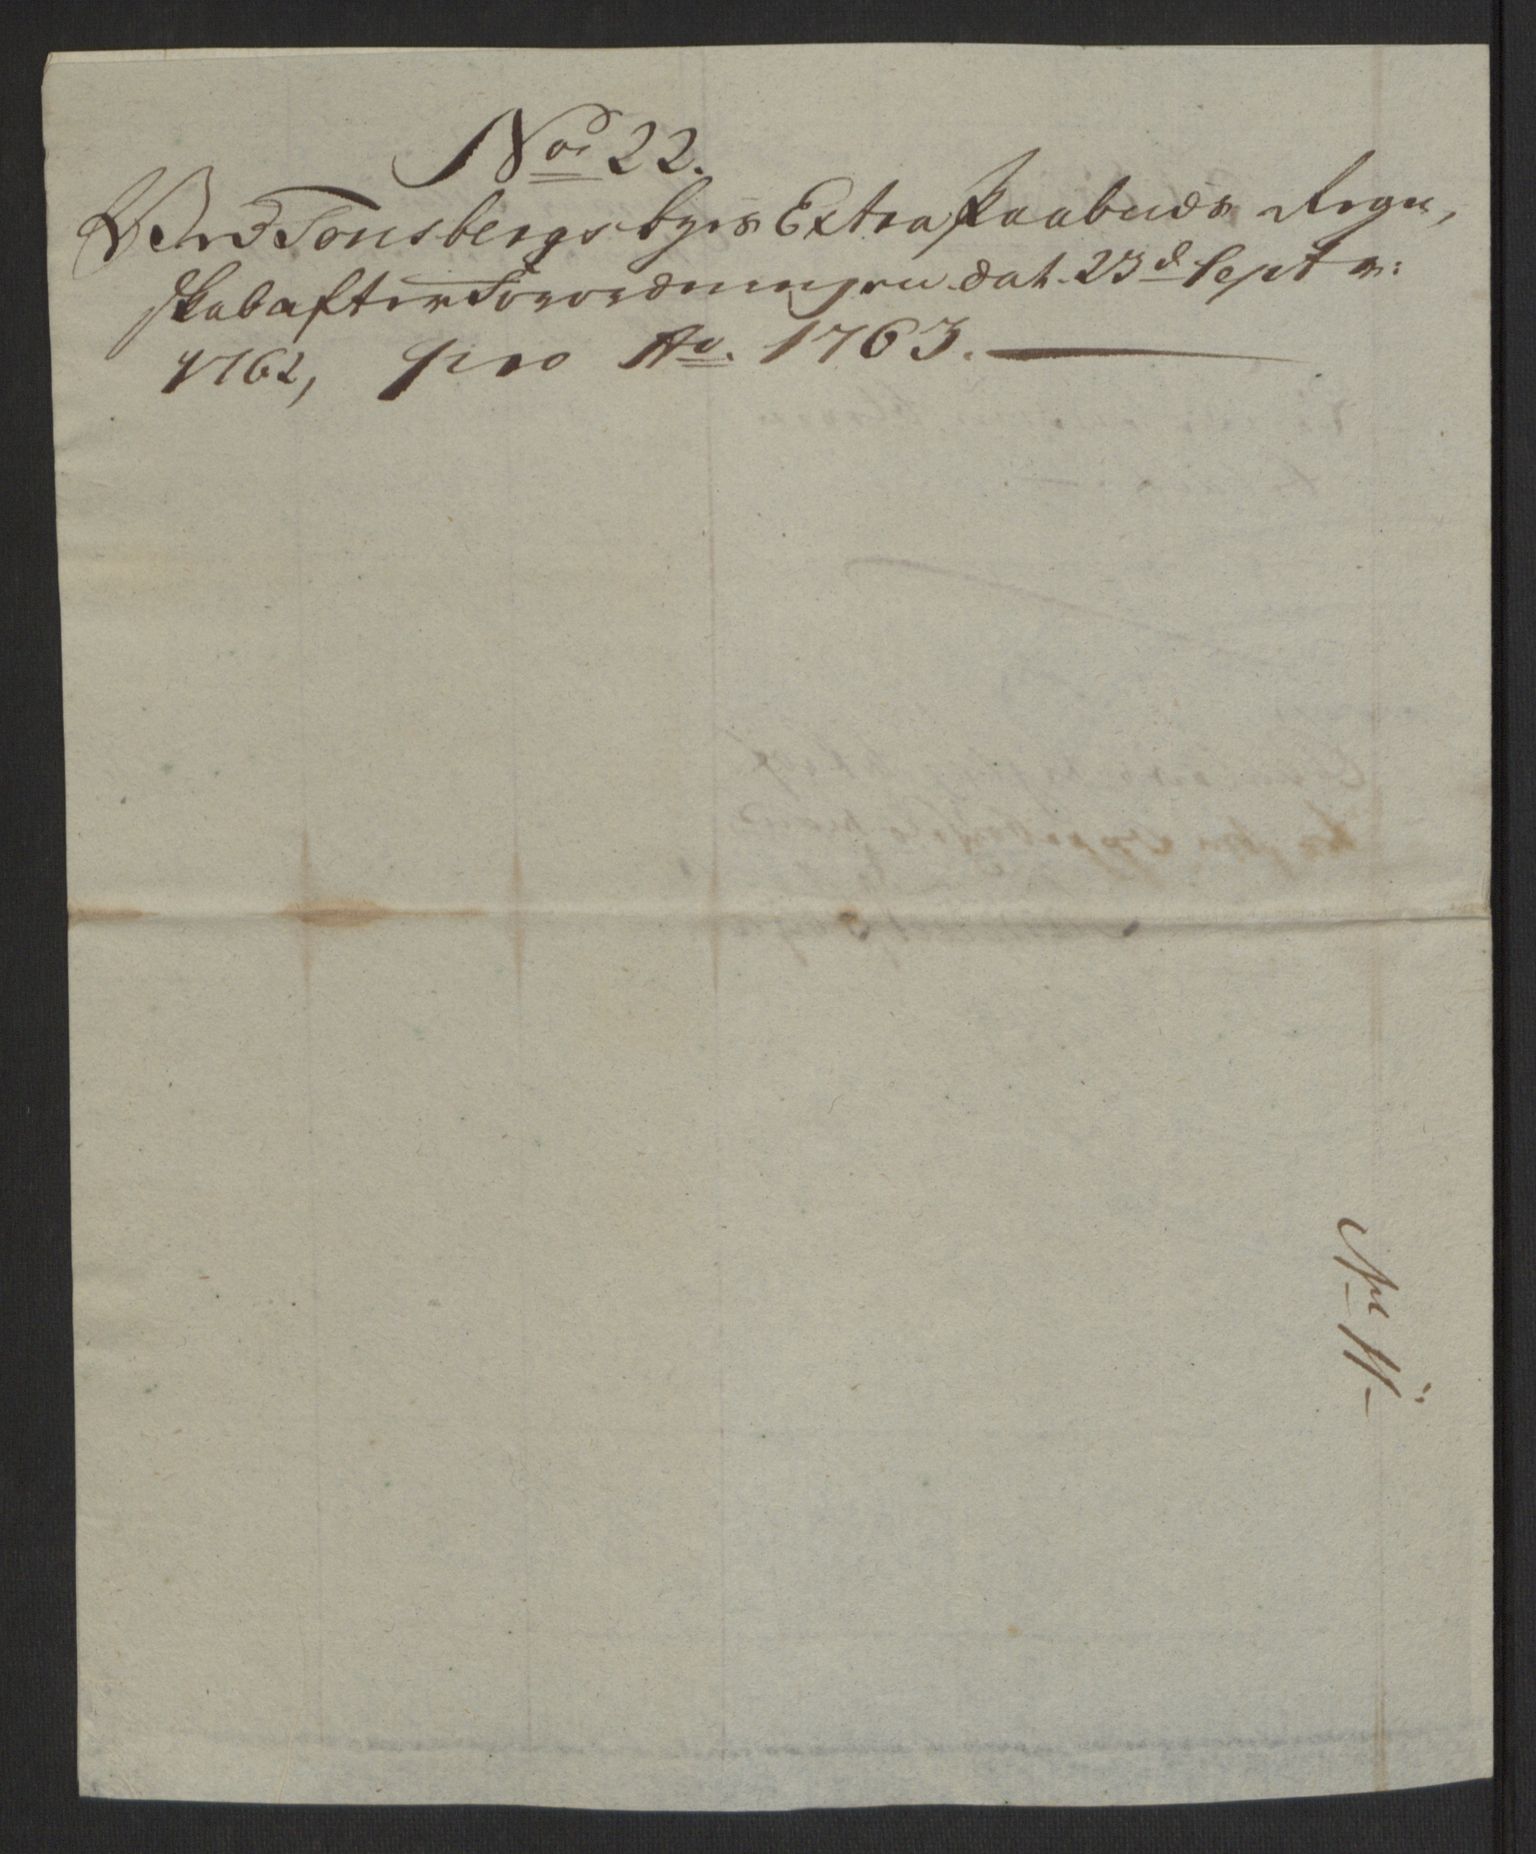 No. 22.
Ved Tonsbergs byes Extra Paabuds Regn,
skab efter Forordningen dat. 23d. Septr:
1762, pro Ao. 1763.